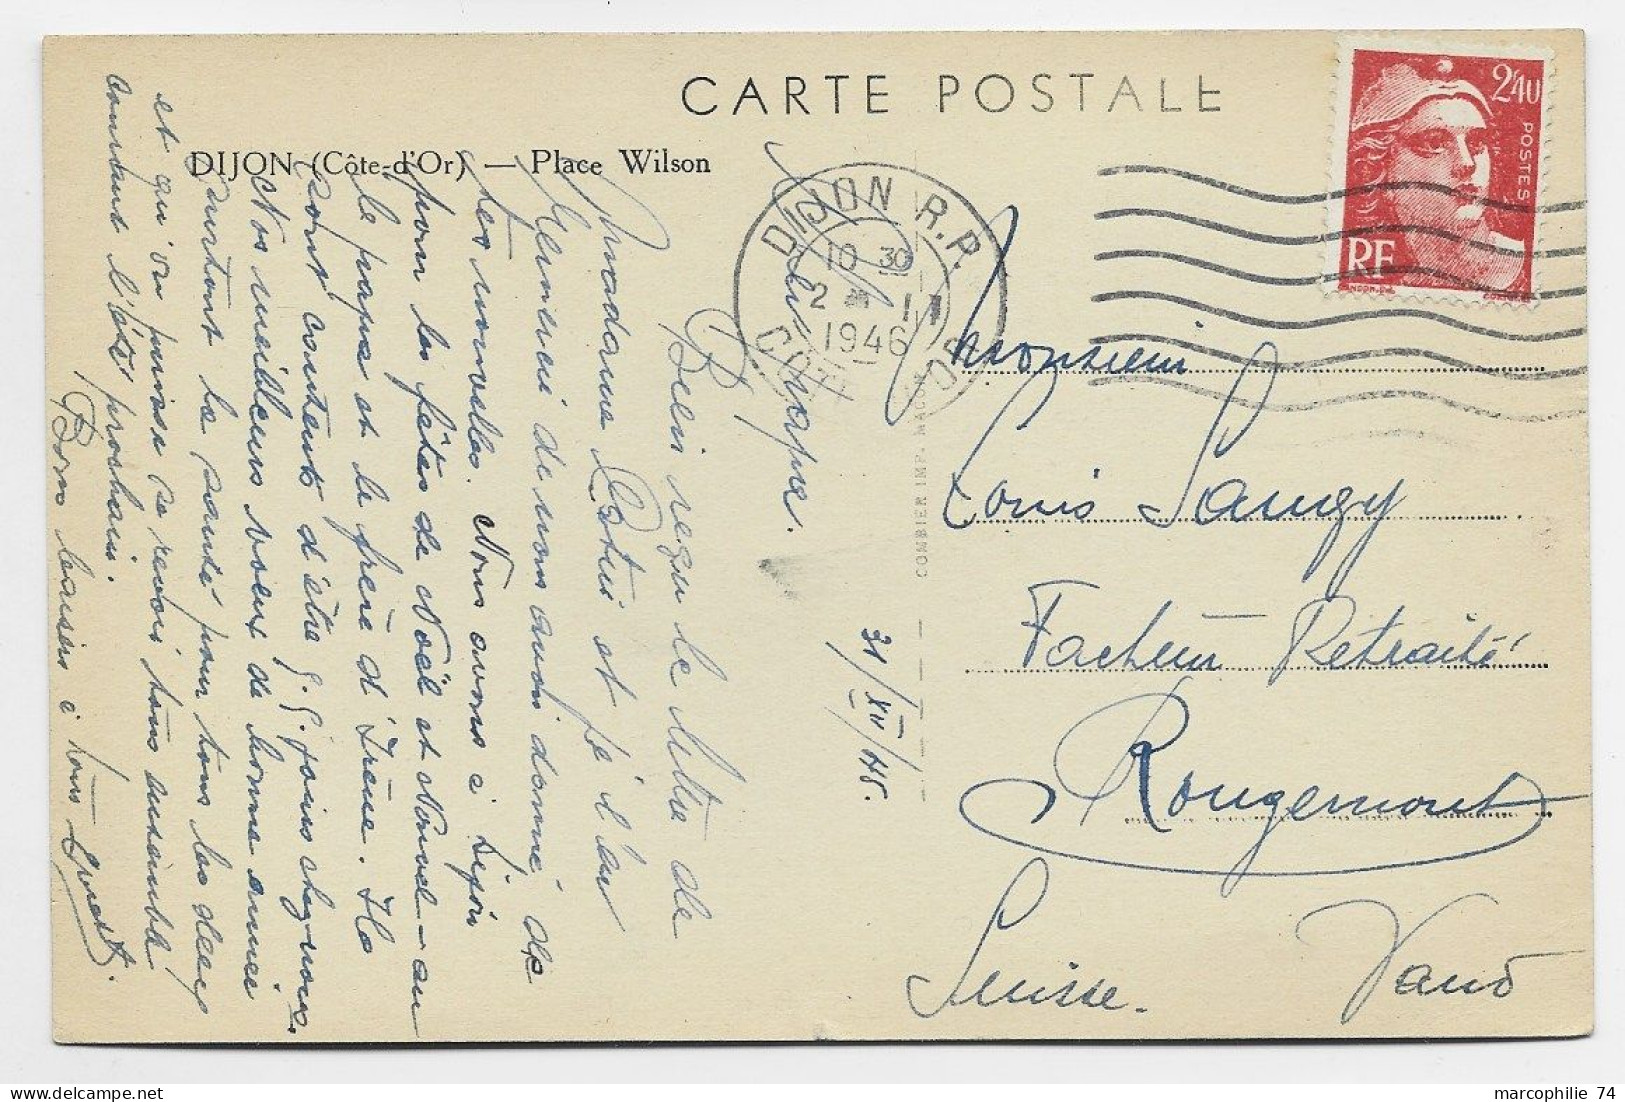 CARTE POSTALE
DIJON (Côte-d'Or) — Place Wilson
2f40
POSTES
RF
DIJON R.P.
10 30
2 - 1
1946
CÔTE D'OR
COMBIER IMP. MACON
31/XII/45.
Bien reçu la lettre de
Madame et
de vous avoir donné de
les nouvelles. Nous avons à Dijon
pour les fêtes de Noël et Nouvel-an
le papa et la frère d'Irène. Ils
sont contents d'être q.q. jours chez nous.
Nos meilleurs voeux de bonne année
surtout la santé pour tous les deux
et qu'on puisse se revoir tous ensemble
l'été prochain.
Bons baisers à tous
Monsieur
Louis Saugy
Facteur Retraité
Rougemont
Vaud
Suisse.
marcophilie 74